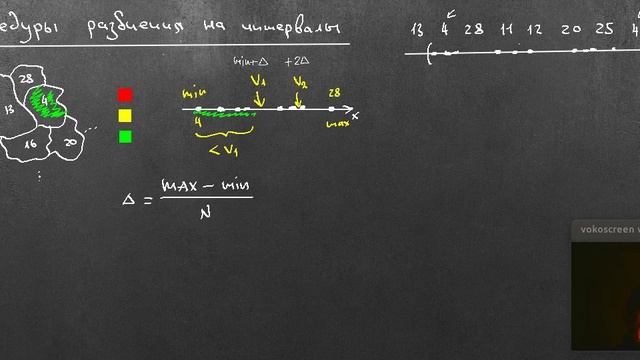 едуры разбиения на интервалы
13 4 28 11 12 20 25 4
min+Δ +2Δ
28
min V₁ V₂ 28
4
13
4 max x
16 20 ...
< V₁
Δ = max - min / N
vokoscreen